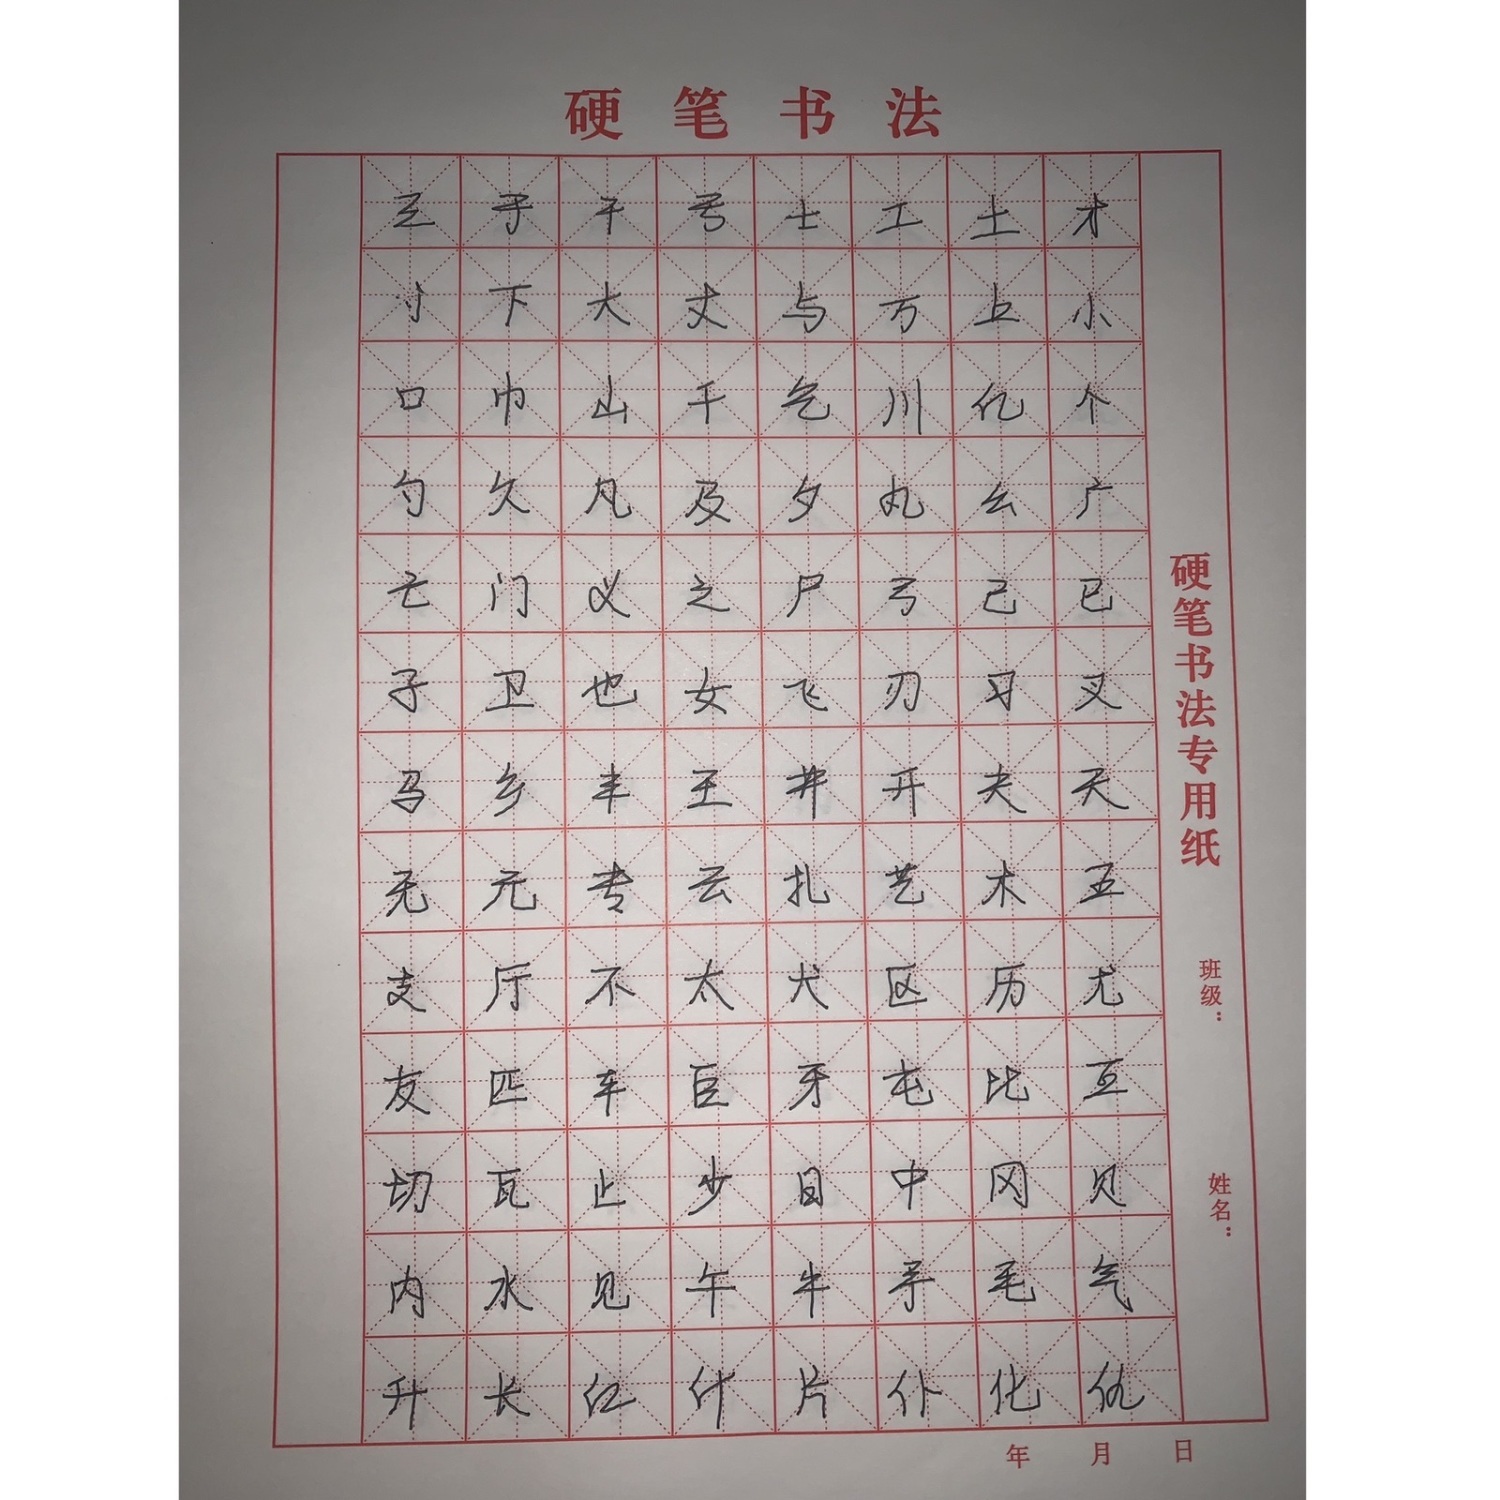 硬笔书法
三于干亏士工土才
寸下大丈与万上小
口巾山千乞川亿个
勺久凡及夕丸么广
亡门义之尸弓己已
子卫也女飞刃习叉
马乡丰王井开夫天
无元专云扎艺木五
支厅不太犬区历尤
友匹车巨牙屯比互
切瓦止少日中冈贝
内水见午牛手毛气
升长仁什片仆化仇
硬笔书法专用纸
班级：
姓名：
年 月 日